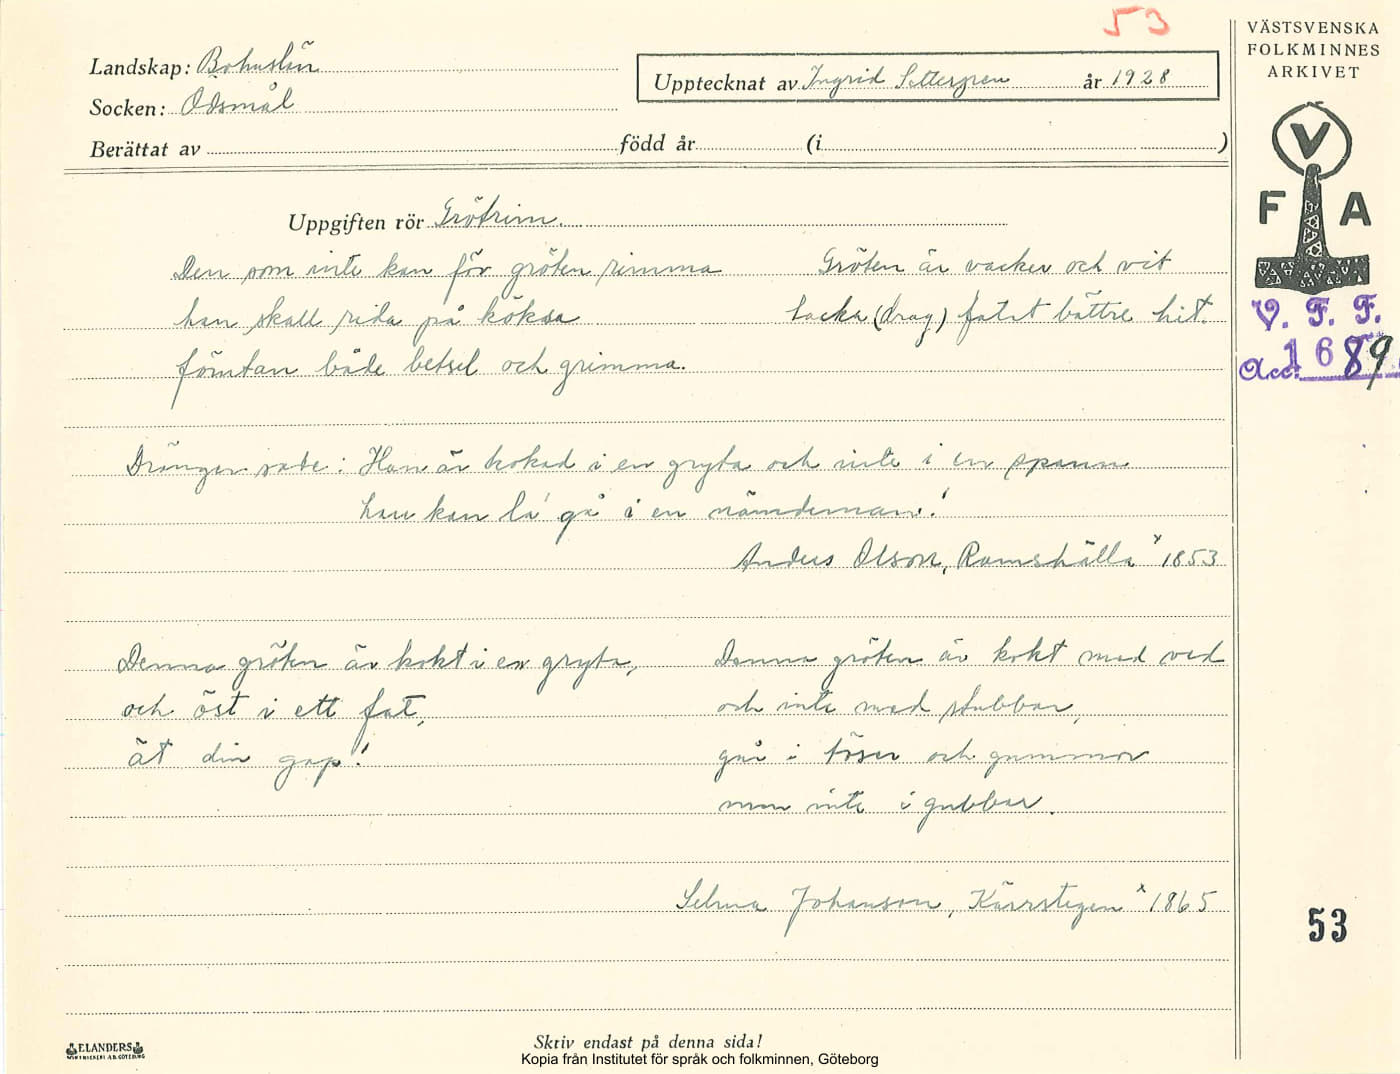 53
VÄSTSVENSKA
FOLKMINNES
ARKIVET
Landskap: Bohuslän
Upptecknat av Ingrid Settergren år 1928
Socken: Ödsmål
Berättat av född år (i )
V
F A
V. F. F.
Acc. 1689
Uppgiften rör Grötrim.
Den som inte kan för gröten rimma
han skall rida på köksa
förutan både betsel och grimma.
Gröten är vacker och vit
backa (drag) fatet bättre hit.
Drängen sade: Han är kokad i en gryta och inte i en spann
han kan la' gå i en nämdeman!
Anders Olson, Ramshälla * 1853
Denna gröten är kokt i en gryta,
och öst i ett fat,
ät din gap!
Denna gröten är kokt med ved
och inte med stubbar,
går i töser och gummor
men inte i gubbar.
Selma Johanson, Kärrstegen * 1865
53
ELANDERS
Skriv endast på denna sida!
Kopia från Institutet för språk och folkminnen, Göteborg